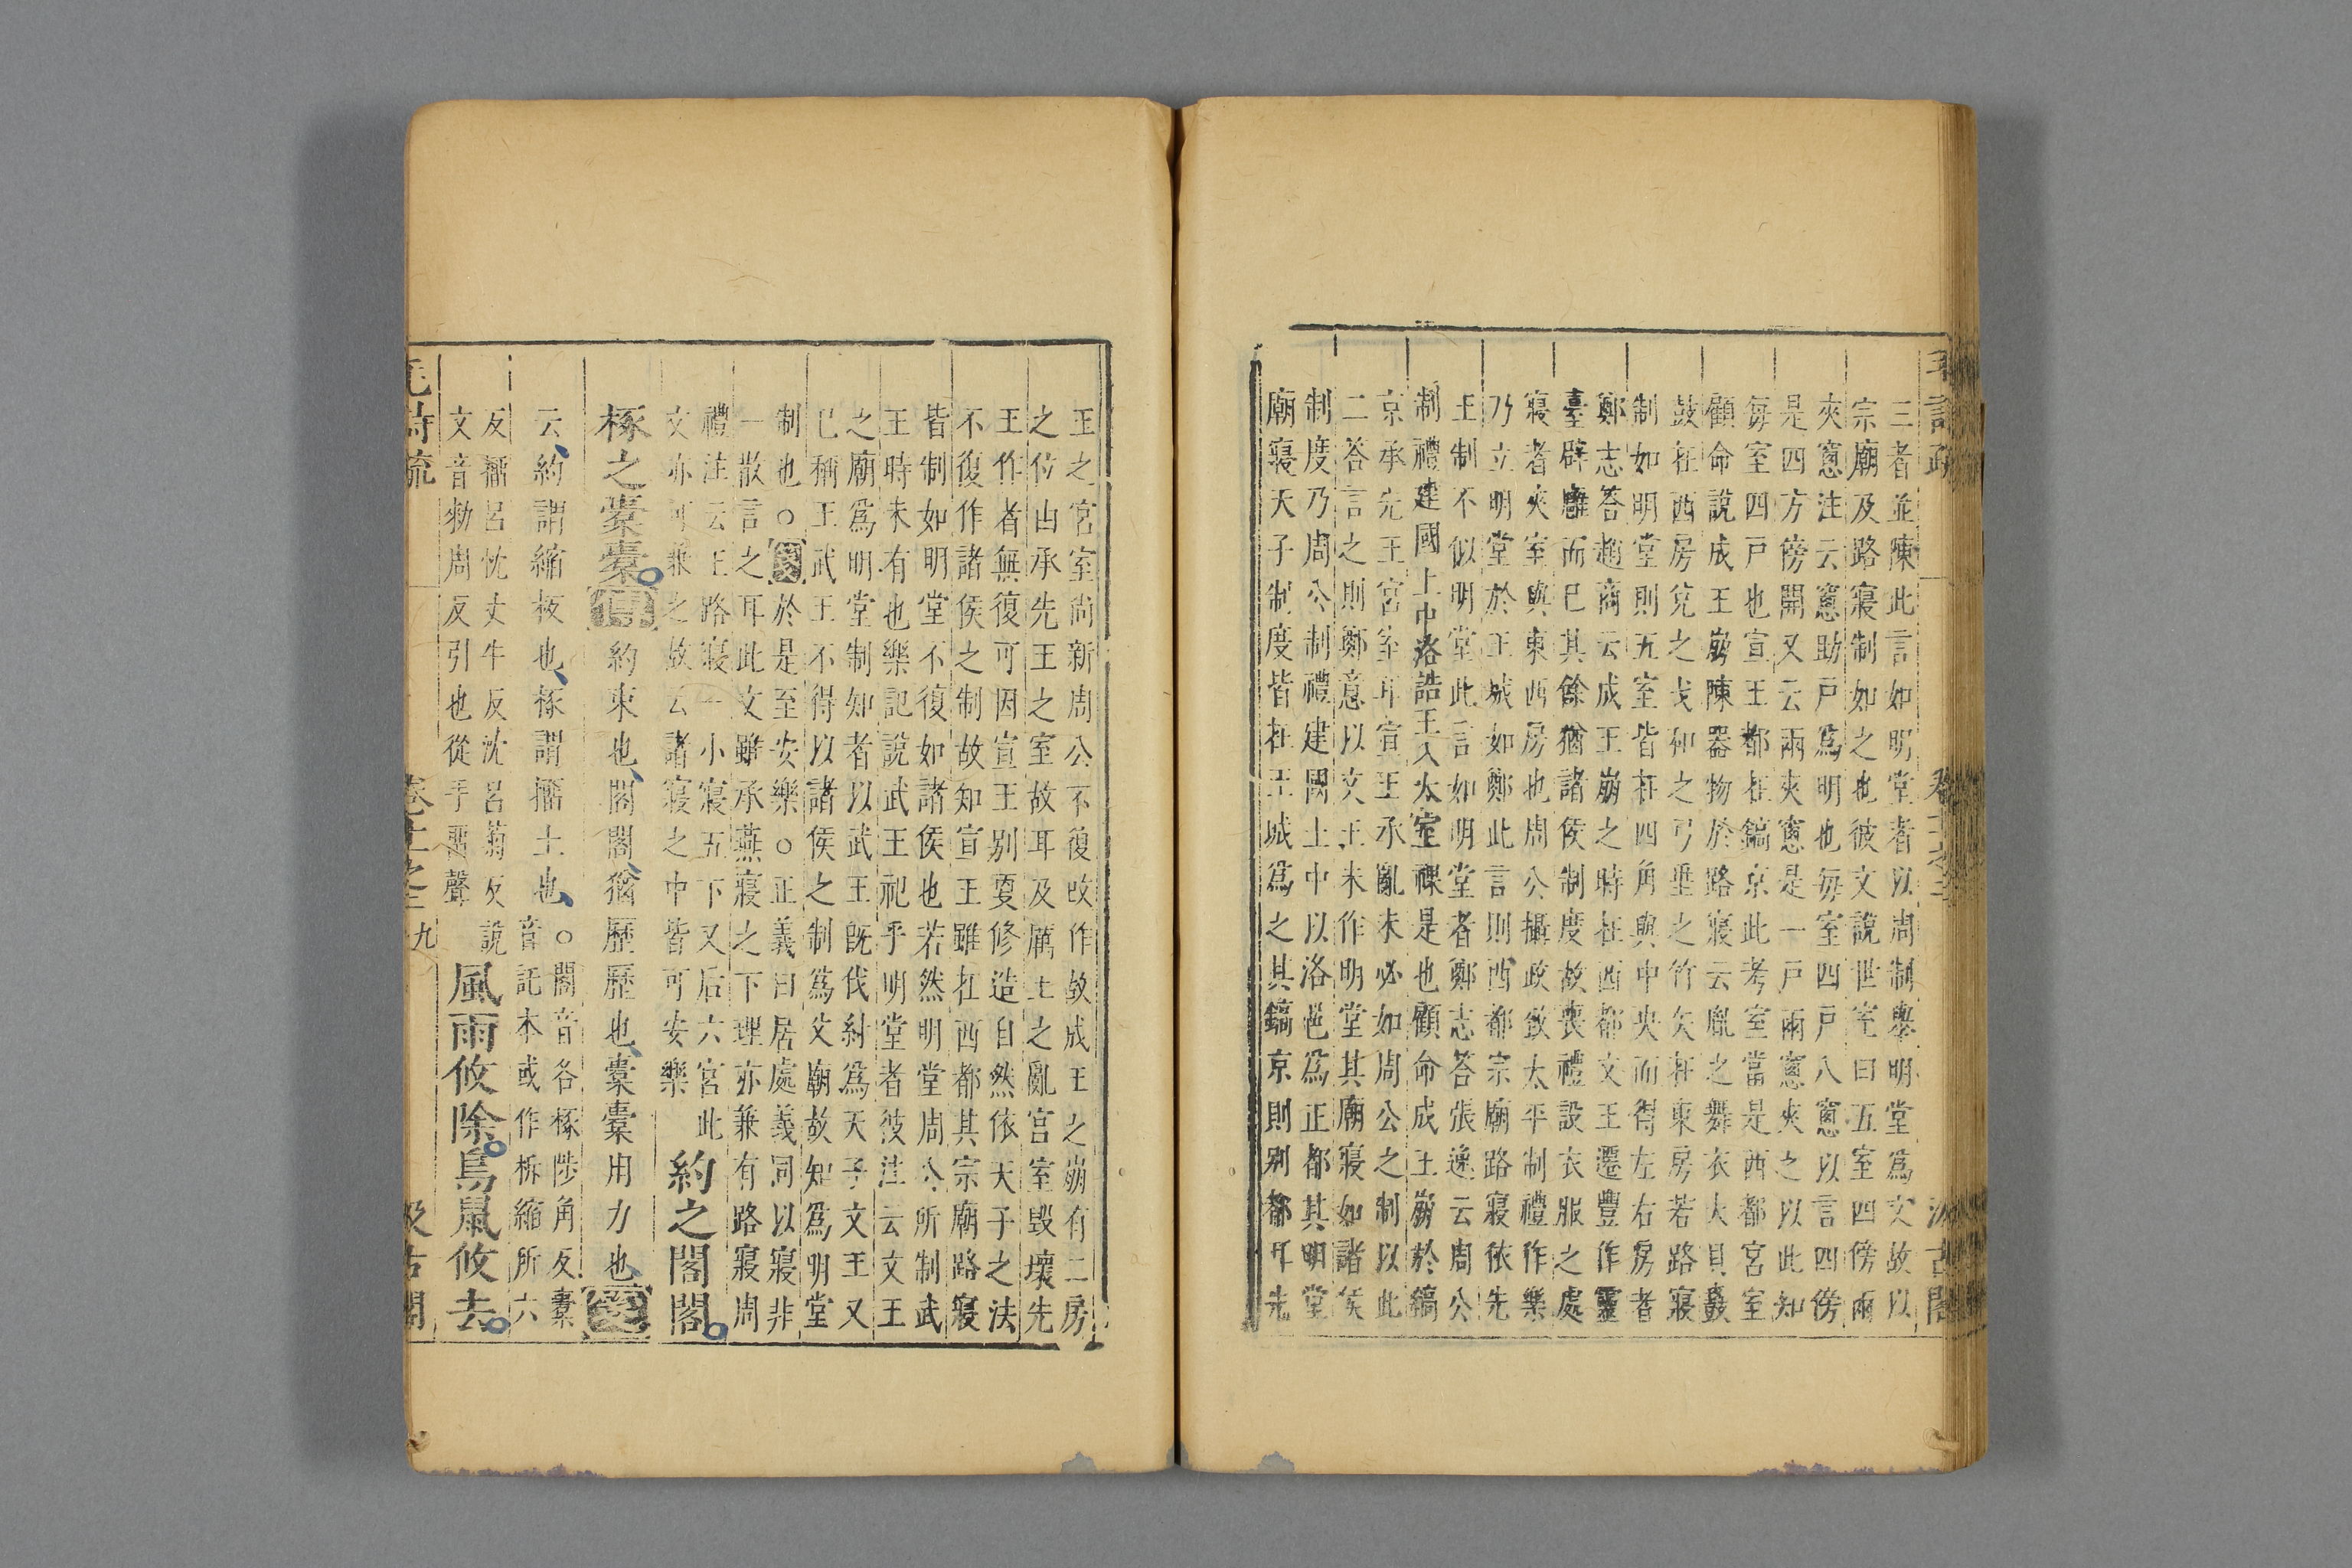 三者並陳此言如明堂者以周制舉明堂為文故以
宗廟及路寢制如之也彼文說世室曰五室四傍兩
夾窻注云窻助戸為明也每室四戸八窻以言四傍
是四方傍開又云兩夾窻是一戸兩窻夾之以此知
每室四戸也宣王都在鎬京此考室當是西都宮室
顧命說成王崩陳器物於路寢云胤之舞衣大貝鼖
鼓在西房兌之戈和之弓垂之竹矢在東房若路寢
制如明堂則五室皆在四角與中央而得左右房者
鄭志答趙商云成王崩之時在西都文王遷豐作靈
臺辟廱而已其餘猶諸侯制度故喪禮設衣服之處
寢者夾室與東西房也周公攝政致太平制禮作樂
乃立明堂於王城如鄭此言則西都宗廟路寢依先
王制不似明堂此言如明堂者鄭志答張逸云周公
制禮建國土中洛誥王入太室祼是也顧命成王崩於鎬
京承先王宮室耳宣王承亂未必如周公之制以此
二答言之則鄭意以文王未作明堂其廟寢如諸侯
制度乃周公制禮建國土中以洛邑為正都其明堂
廟寢天子制度皆在王城為之其鎬京則別都耳先
王之宮室尚新周公不復改作故成王之崩有二房
之位由承先王之室故耳及厲王之亂宮室毀壞先
王作者無復可因宣王別更修造自然依天子之法
不復作諸侯之制故知宣王雖在西都其宗廟路寢
皆制如明堂不復如諸侯也若然明堂周公所制武
王時未有也樂記說武王祀乎明堂者彼注云文王
之廟為明堂制如者以武王既伐紂為天子文王又
巳稱王武王不得以諸侯之制為文廟故知為明堂
制也○箋於是至安樂○正義曰居處義同以寢非
一散言之耳此文雖承燕寢之下理亦兼有路寢周
禮注云王路寢一小寢五下又后六宮此
文亦可兼之故云諸寢之中皆可安樂
約之閣閣
椓之橐橐傳約束也閣閣猶歷歷也橐橐用力也箋
云約謂縮板也椓謂㩅土也○閣音各椓陟角反橐
音託本或作柝縮所六
反㩅呂忱丈牛反沈呂菊反說
文音勑周反引也從手畱聲
風雨攸除鳥鼠攸去
九